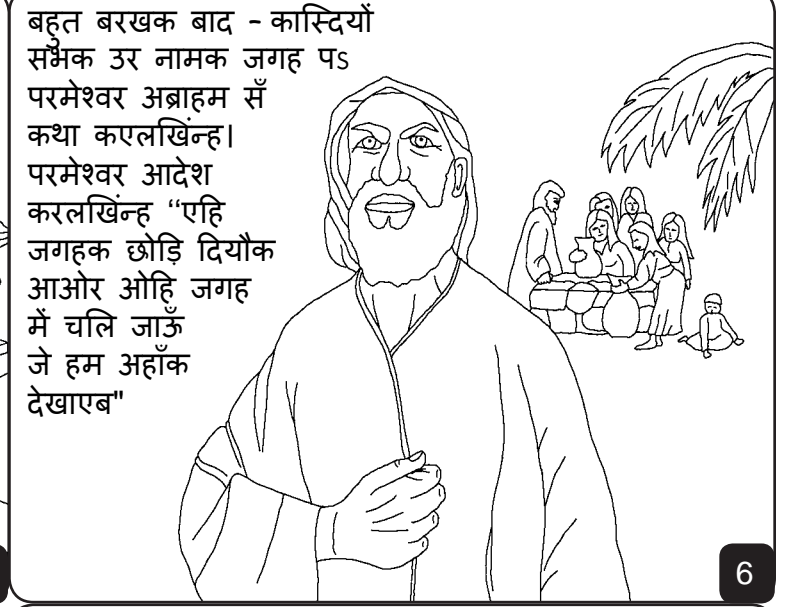 बहुत बरखक बाद – कास्दियों
सभक उर नामक जगह पऽ
परमेश्वर अब्राहम सँ
कथा कएलखिंन्ह।
परमेश्वर आदेश
करलखिंन्ह “एहि
जगहक छोड़ि दियौक
आओर ओहि जगह
में चलि जाऊँ
जे हम अहाँक
देखाएब"
6